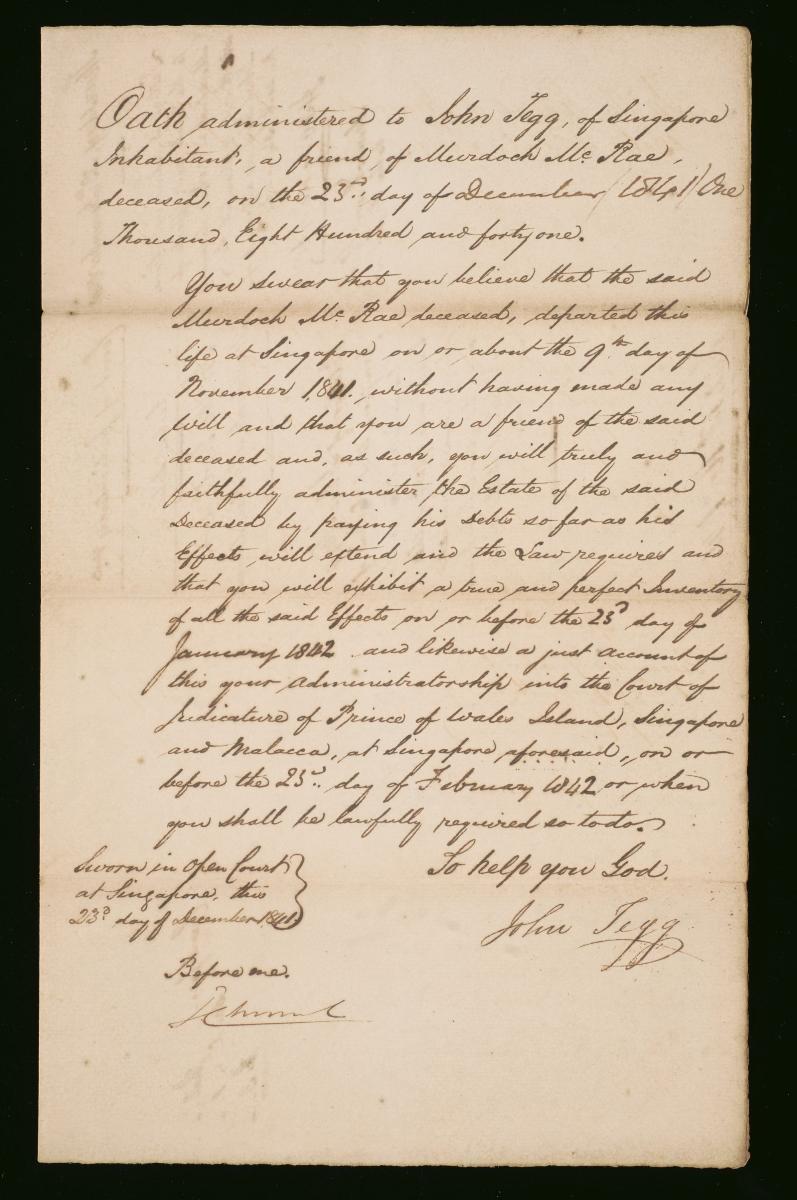 Oath administered to John Tegg, of Singapore
Inhabitant, a friend, of Murdoch Mc. Rae,
deceased, on the 23rd.. day of December (1841) One
Thousand, Eight Hundred and forty one.
You swear that you believe that the said
Murdoch Mc. Rae deceased, departed this
life at Singapore on or about the 9th day of
November 1841., without having made any
Will and that you are a friend of the said
deceased and, as such, you will truly and
faithfully administer the Estate of the said
Deceased by paying his Debts so far as his
Effects will extend and the Law requires and
that you will exhibit a true and perfect Inventory
of all the said Effects on or before the 23d day of
January 1842 and likewise a just account of
this your administratorship into the Court of
Judicature of Prince of Wales Island, Singapore
and Malacca, at Singapore aforesaid, on or
before the 23rd.. day of February 1842 or when
you shall be lawfully required so to do.
So help you God.
John Tegg
Sworn in Open Court
at Singapore, this
23d. day of December 1841.
Before me.